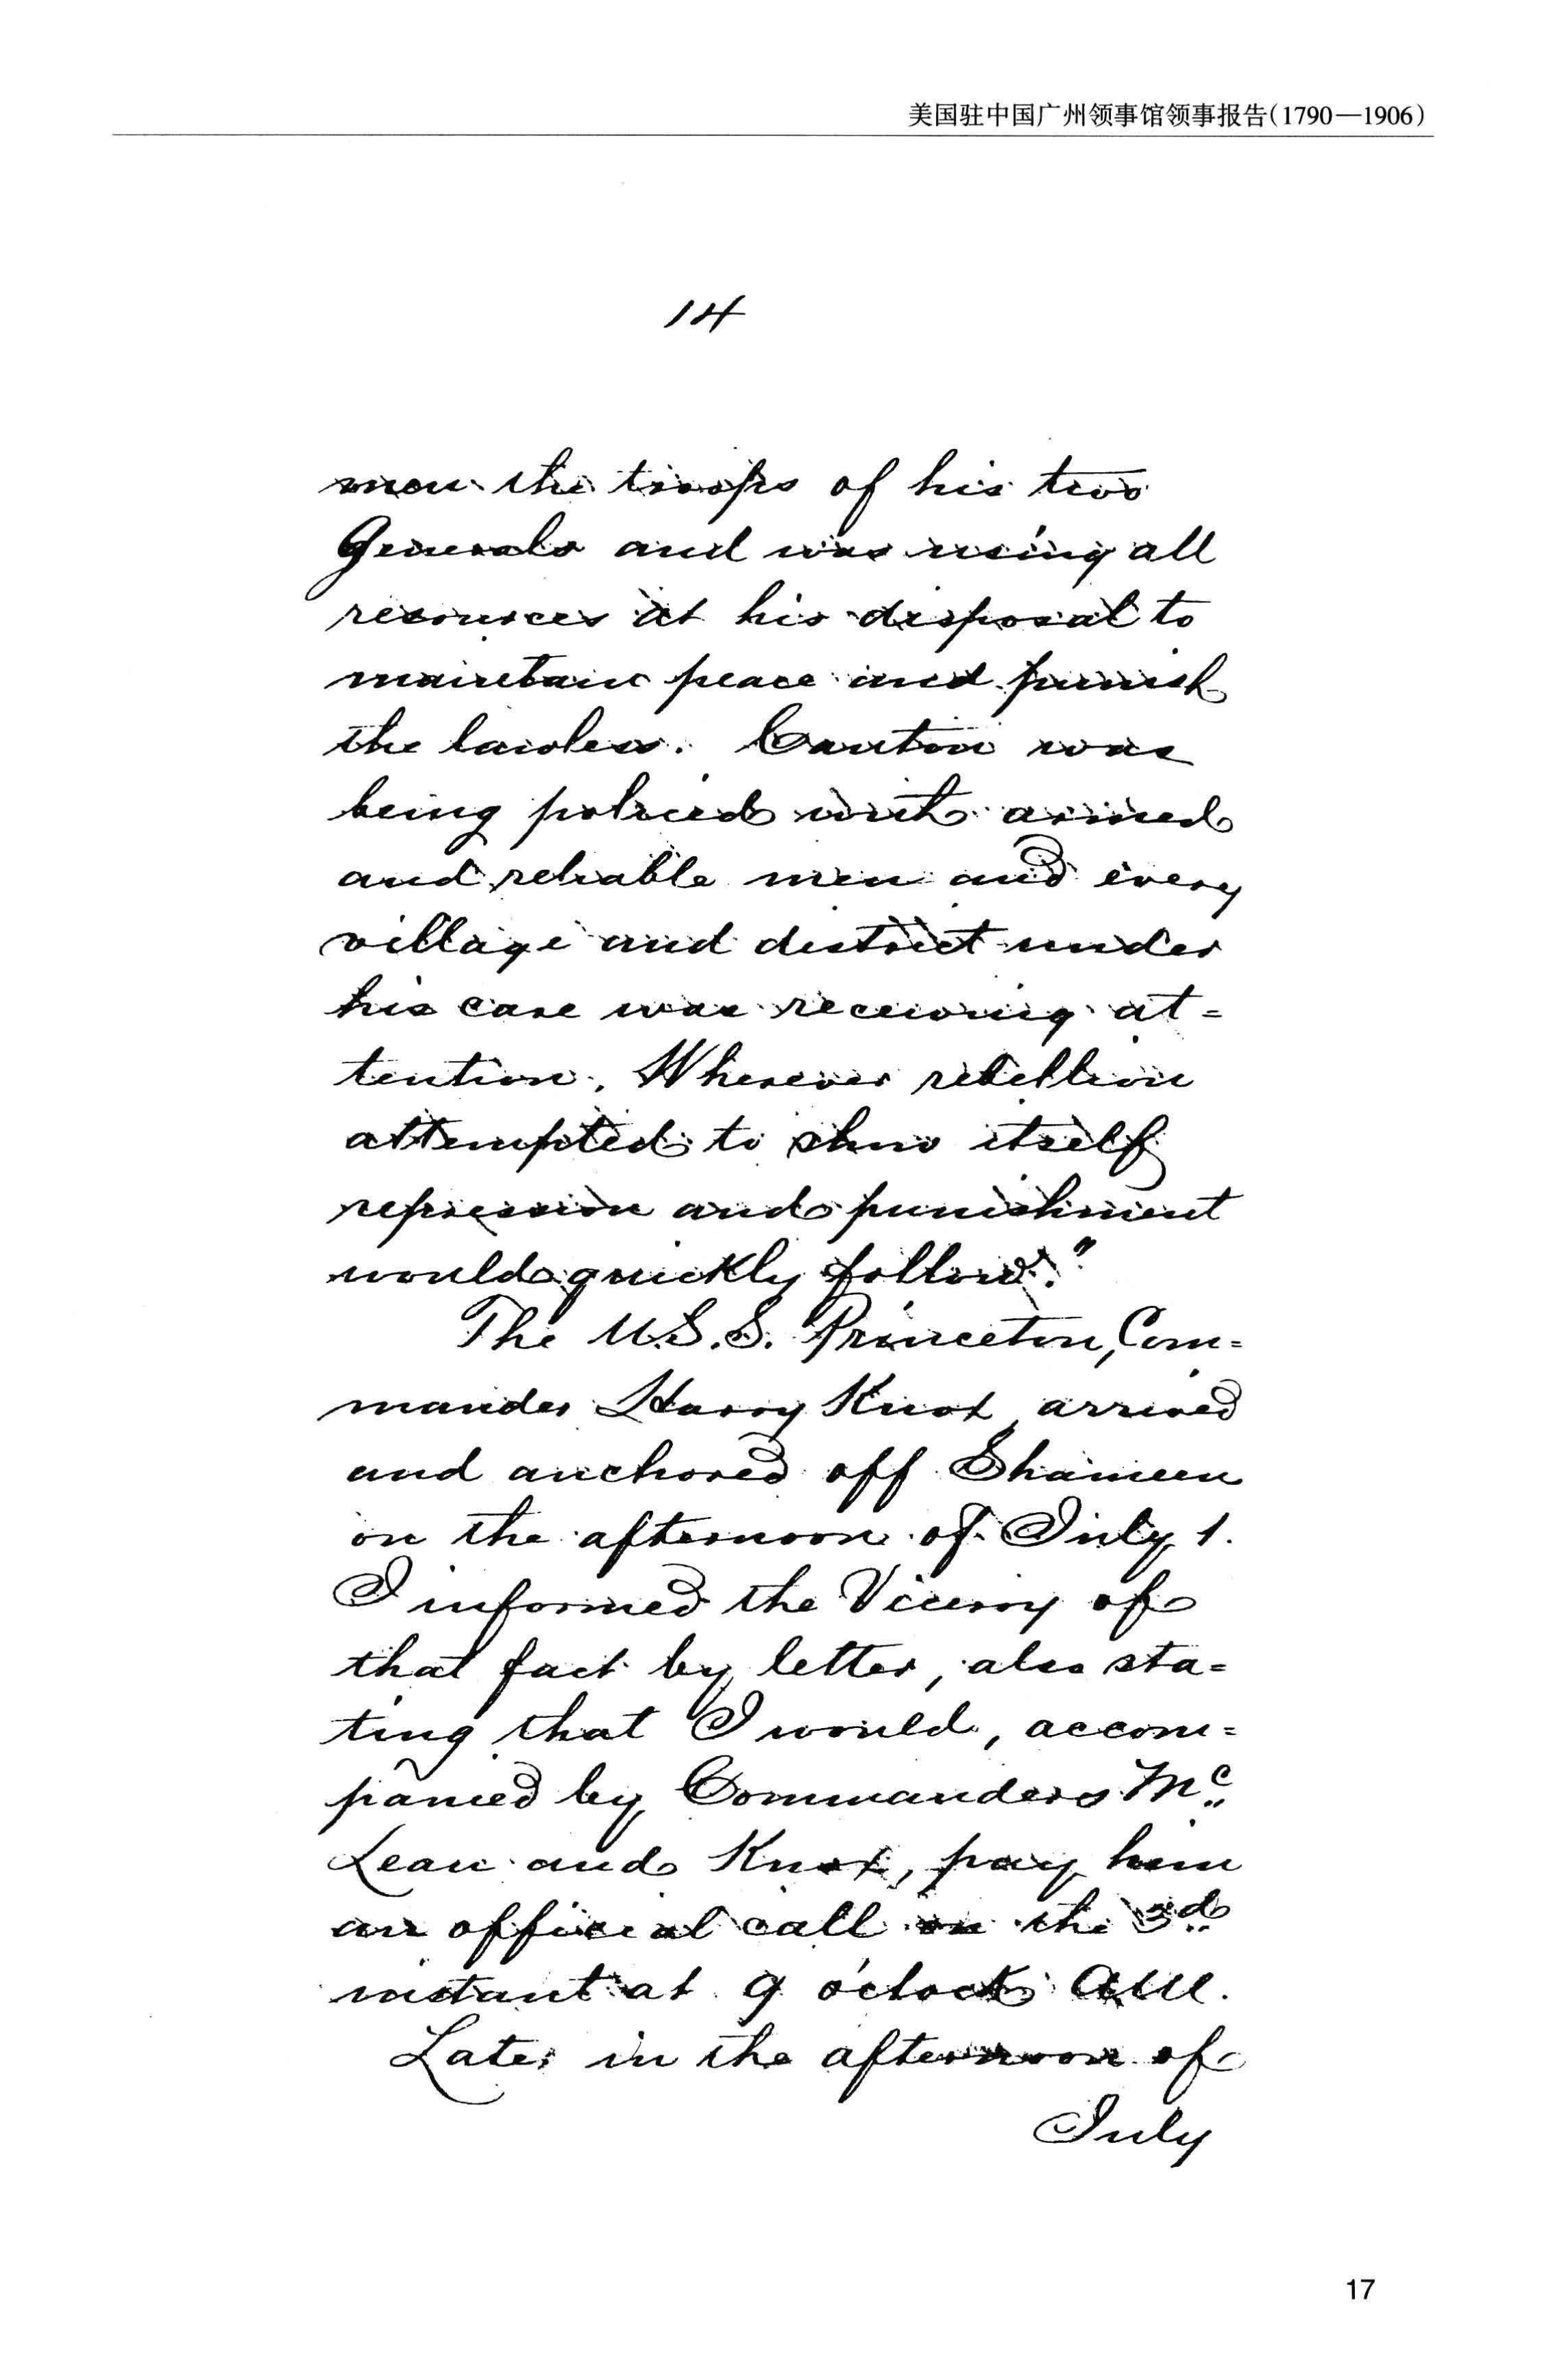 美国驻中国广州领事馆领事报告(1790—1906)
14
men the troops of his two
Generals and was using all
resources at his disposal to
maintain peace and punish
the lawless. Canton was
being policed with armed
and reliable men and every
village and district under
his care was receiving at=
tention. Wherever rebellion
attempted to show itself
repression and punishment
would quickly follow."
The U.S.S. Princeton, Com=
mander Harry Knox, arrived
and anchored off Shameen
on the afternoon of July 1.
I informed the Viceroy of
that fact by letter, also sta=
ting that I would, accom=
panied by Commanders Mc
Lean and Knox, pay him
an official call on the 3d
instant at 9 o'clock A.M.
Later in the afternoon of
July
17